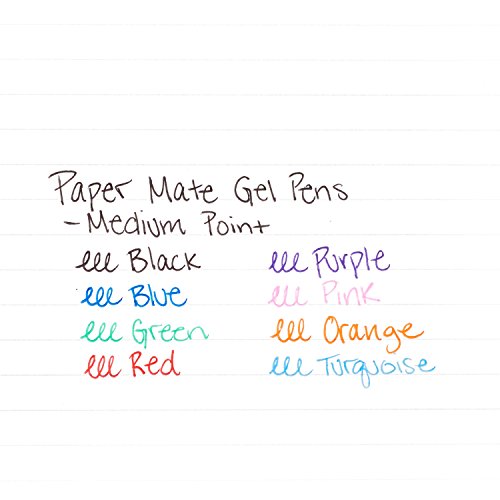 Paper Mate Gel Pens
- Medium Point
lll Black lll Purple
lll Blue lll Pink
lll Green lll Orange
lll Red lll Turquoise